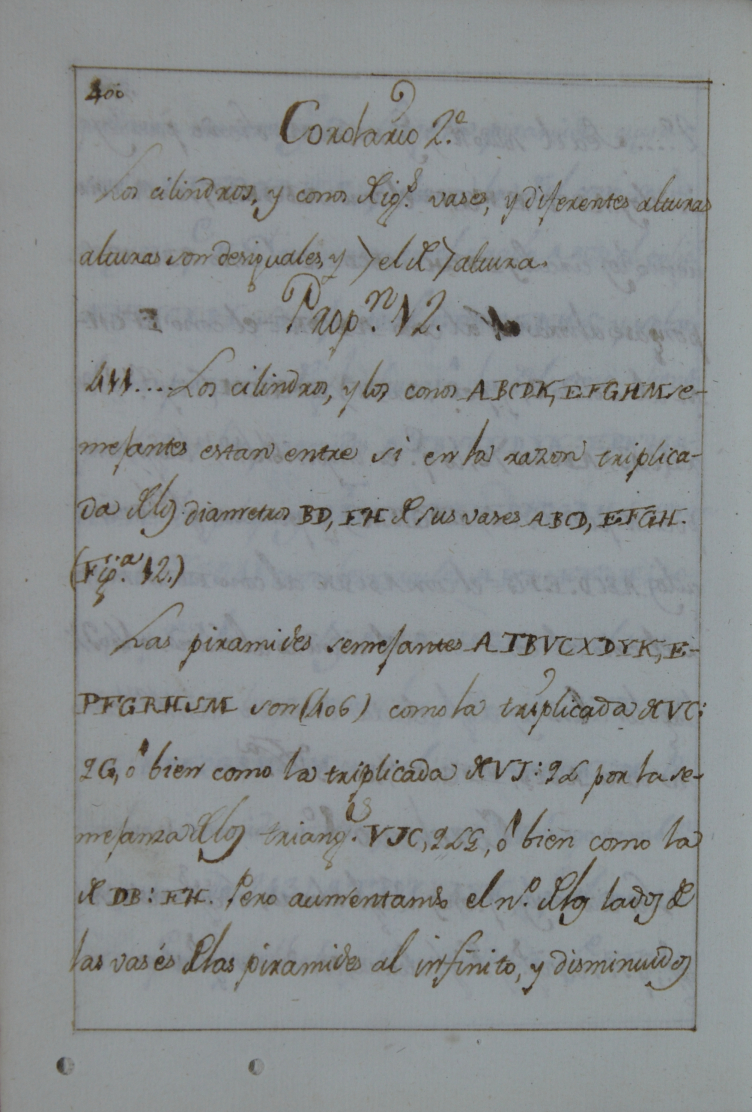 400
Corolario 2.º
Los cilindros, y conos de ig.s vases, y diferentes alturas
alturas son desiguales, y > el de > altura.
Prop.n 12.
411.... Los cilindros, y los conos ABCDK, EFGHM se-
mejantes estan entre si en la razon triplica-
da de los diametros BD, FH de sus vases ABCD, EFGH.
(Fig.a 12.)
Las piramides semejantes ATBVCXDYK, E-
PFGRHSM son (406) como la triplicada de VC:
QG, ó bien como la triplicada de VI: QL por la se-
mejanza de los triang.s VIC, QLG, ó bien como la
de DB: FH. Pero aumentando el n.º de los lados de
las vasés de las piramides al infinito, y disminuidos